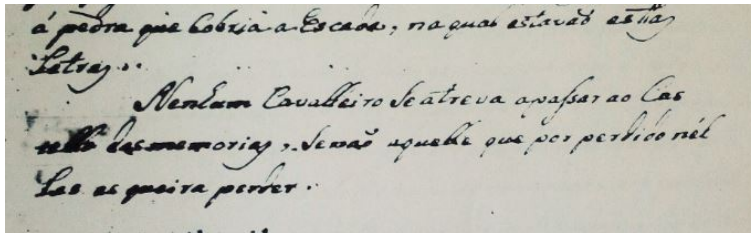 á pedra que Cobria a Escada, na qual estavaõ estas
Letras..
Nenhum Cavalleiro Se atreva apassar ao Cas
tello das memorias, Senaõ aquelle que por perdido nél
Las se queira perder.